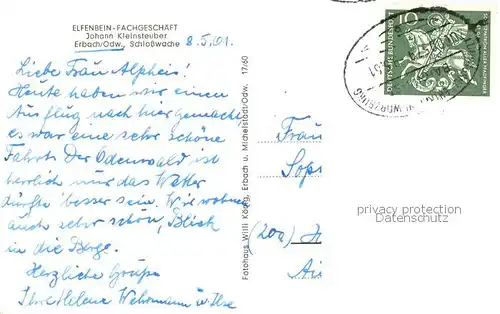 ELFENBEIN-FACHGESCHÄFT
Johann Kleinsteuber
Erbach/Odw., Schloßwache
8.5.61.
Liebe Frau Alpheis!
Heute haben wir einen
Ausflug nach hier gemacht,
es war eine sehr schöne
Fahrt. Der Odenwald ist
herrlich nur das Wetter
dürfte besser sein. Wir wohnen
auch sehr schön, Blick
in die Berge.
Herzliche Grüße
Ihre Helene Wehrmann u. Ilse
Fotohaus Willi König, Erbach u. Michelstadt/Odw. 17/60
10
DEUTSCHE BUNDESPOST
Frau
Sop
(20a) H
privacy protection
Datenschutz